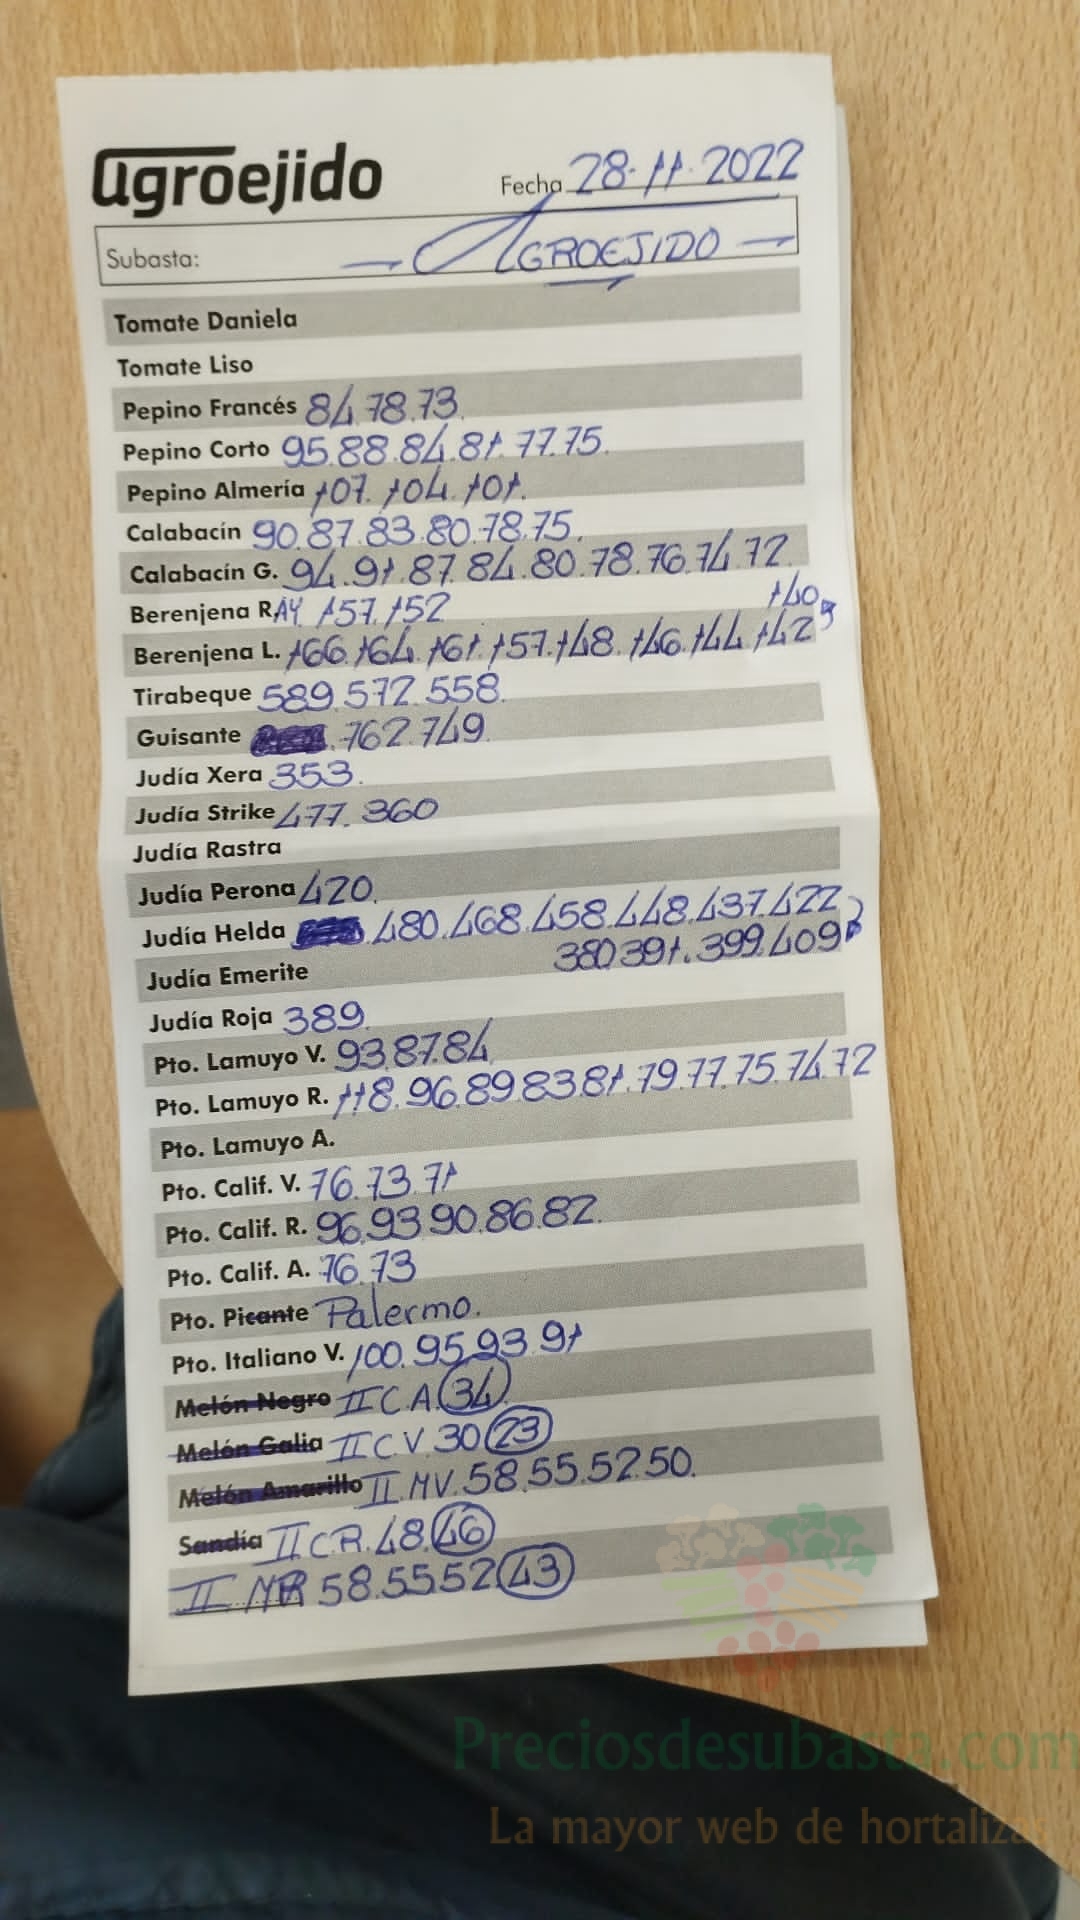 agroejido
Fecha 28-11-2022
Subasta: — AGROEJIDO —
Tomate Daniela
Tomate Liso
Pepino Francés 84.78.73.
Pepino Corto 95.88.84.81.77.75.
Pepino Almería 107.104.101.
Calabacín 90.87.83.80.78.75.
Calabacín G. 94.91.87.84.80.78.76.74.72.
Berenjena RAY 157.152
140
Berenjena L. 166.164.161.157.148.146.144.142
Tirabeque 589.572.558.
Guisante .762.749.
Judía Xera 353.
Judía Strike 477.360
Judía Rastra
Judía Perona 420.
Judía Helda .480.468.458.448.437.422
380 391.399.409
Judía Emerite
Judía Roja 389.
Pto. Lamuyo V. 93.87.84
Pto. Lamuyo R. 118.96.89.83.81.79.77.75.74.72
Pto. Lamuyo A.
Pto. Calif. V. 76.73.71
Pto. Calif. R. 96.93.90.86.82.
Pto. Calif. A. 76.73
Pto. Picante Palermo.
Pto. Italiano V. 100.95.93.91
Melón Negro II C A 34
Melón Galia II C V.30 23
Melón Amarillo II.MV.58.55.52.50.
Sandía II C.R.48.46
II.MR 58.55.52 43
Preciosdesubasta.com
La mayor web de hortaliza